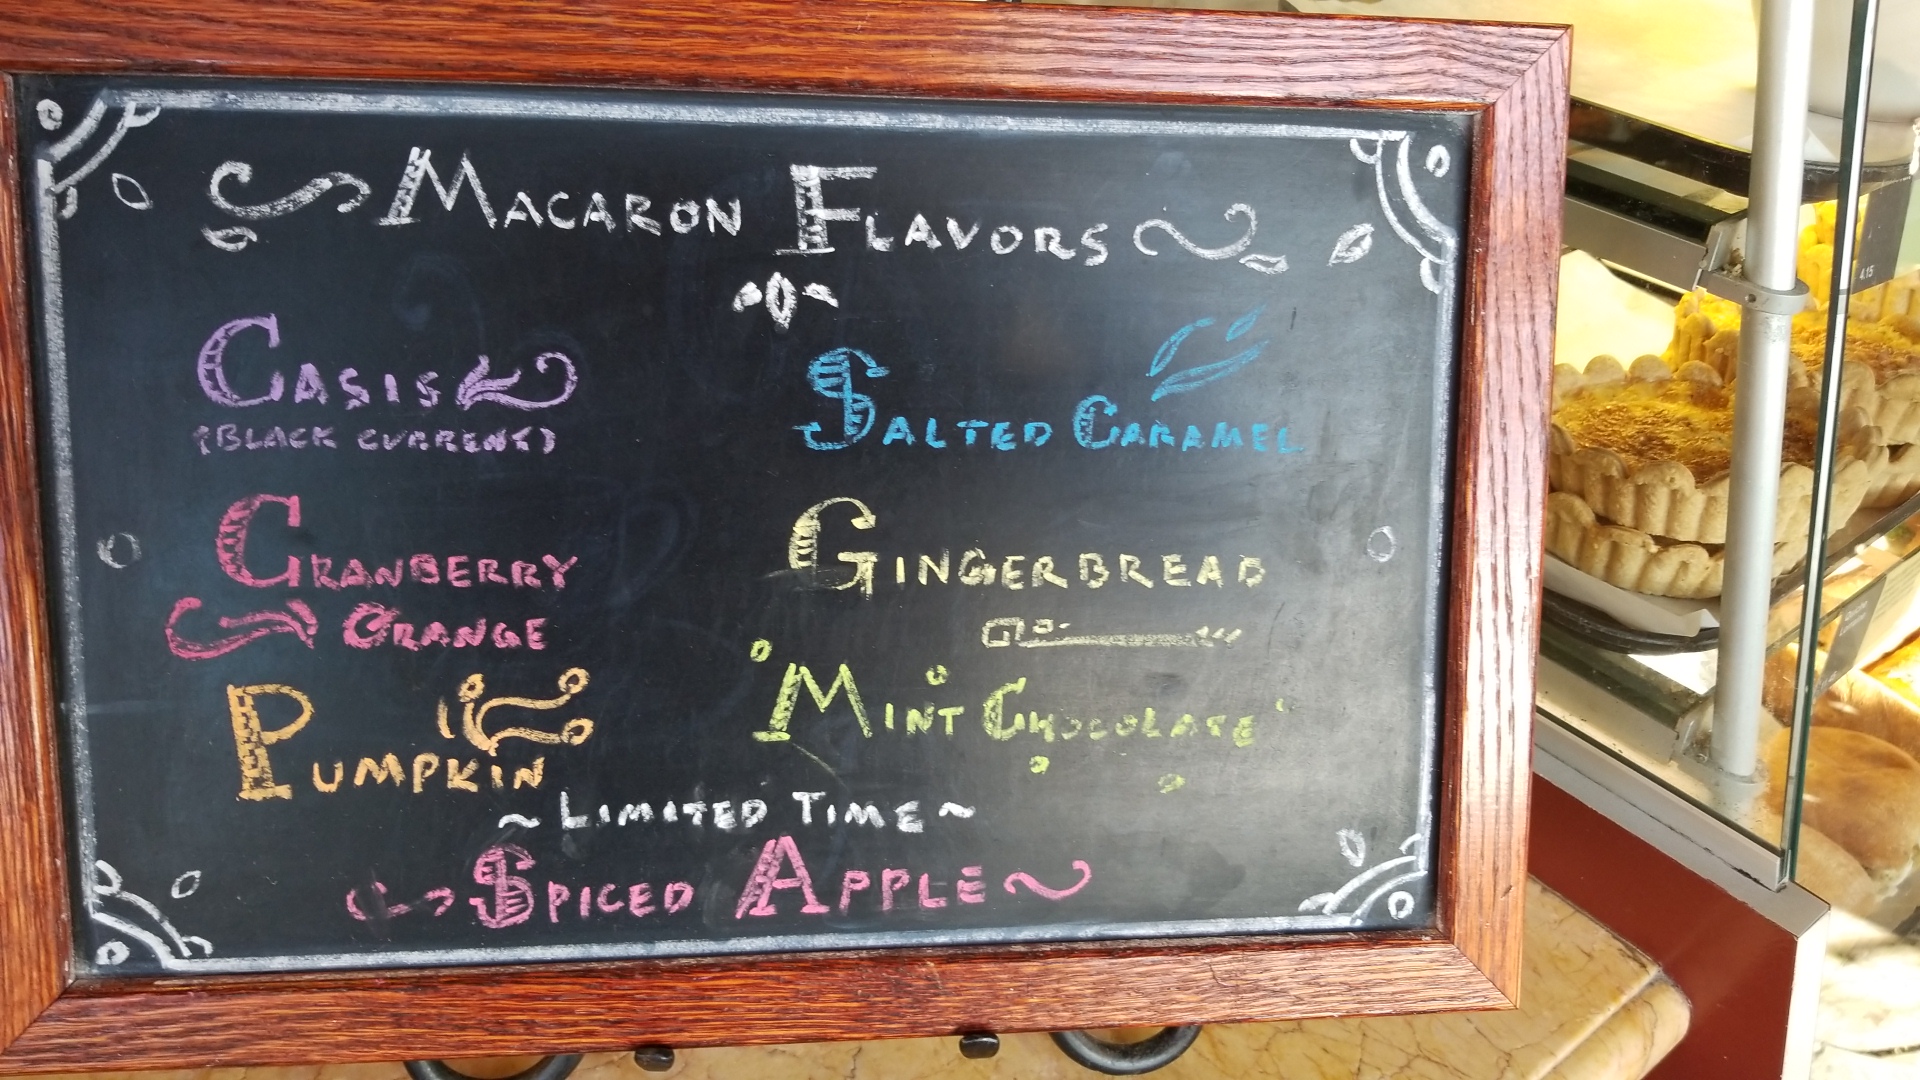 Macaron Flavors
Casis
(Black Current)
Salted Caramel
Cranberry
Orange
Gingerbread
Pumpkin
Mint Chocolate
~ Limited Time ~
Spiced Apple
4.15